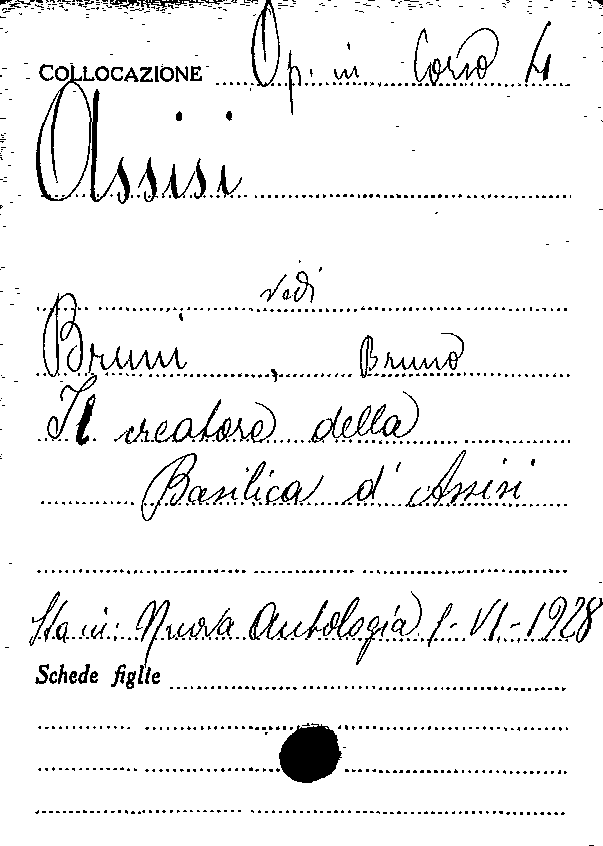 COLLOCAZIONE Op. in Corso 4
Assisi
vedi
Bruni, Bruno
Il creatore della
Basilica d'Assisi
Sta in: Nuova Antologia 1-VI-1928
Schede figlie